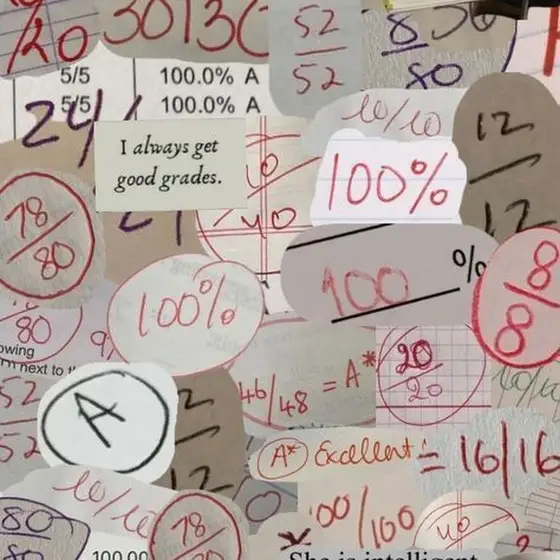 /20
30/30
52
52
8
80
5/5 100.0% A
5/5 100.0% A
24/
10/10
12
12
I always get
good grades.
100%
40
78
80
100 %
8
8
100%
80
owing
next to
46/48 = A*
20
20
52
52
A
12
12
A* Excellent!
= 16/16
10/10
100/100
80
80
78
40
100.00
She is intelligent